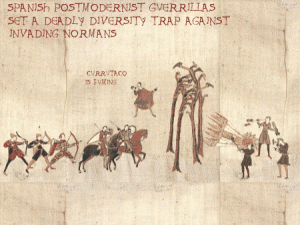 SPANISH POSTMODERNIST GUERRILLAS
SET A DEADLY DIVERSITY TRAP AGAINST
INVADING NORMANS
CURRUTACO
IS FUMING